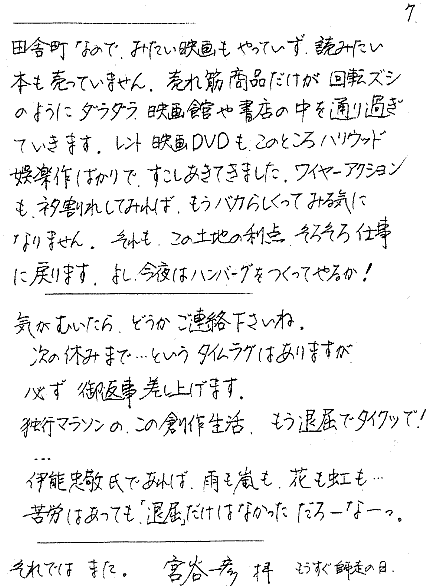 7
田舎町なので、みたい映画もやっていず、読みたい
本も売っていません。売れ筋商品だけが回転ズシ
のようにダラダラ映画館や書店の中を通り過ぎ
ていきます。レント映画DVDも、このところハリウッド
娯楽作ばかりで、すこしあきてきました。ワイヤーアクション
も、ネタ割れしてみれば、もうバカらしくってみる気に
なりません。それも、この土地の利点、そろそろ仕事
に戻ります。よし、今夜はハンバーグをつくってやるか！
気がむいたら、どうかご連絡下さいね。
次の休みまで…というタイムラグはありますが
必ず御返事差し上げます。
独行マラソンの、この創作生活、もう退屈でタイクツで！
…
伊能忠敬氏であれば、雨も嵐も、花も虹も…
苦労はあっても「退屈」だけはなかっただろーなーっ。
それでは また。 宮谷一彦 拝 もうすぐ師走の日。